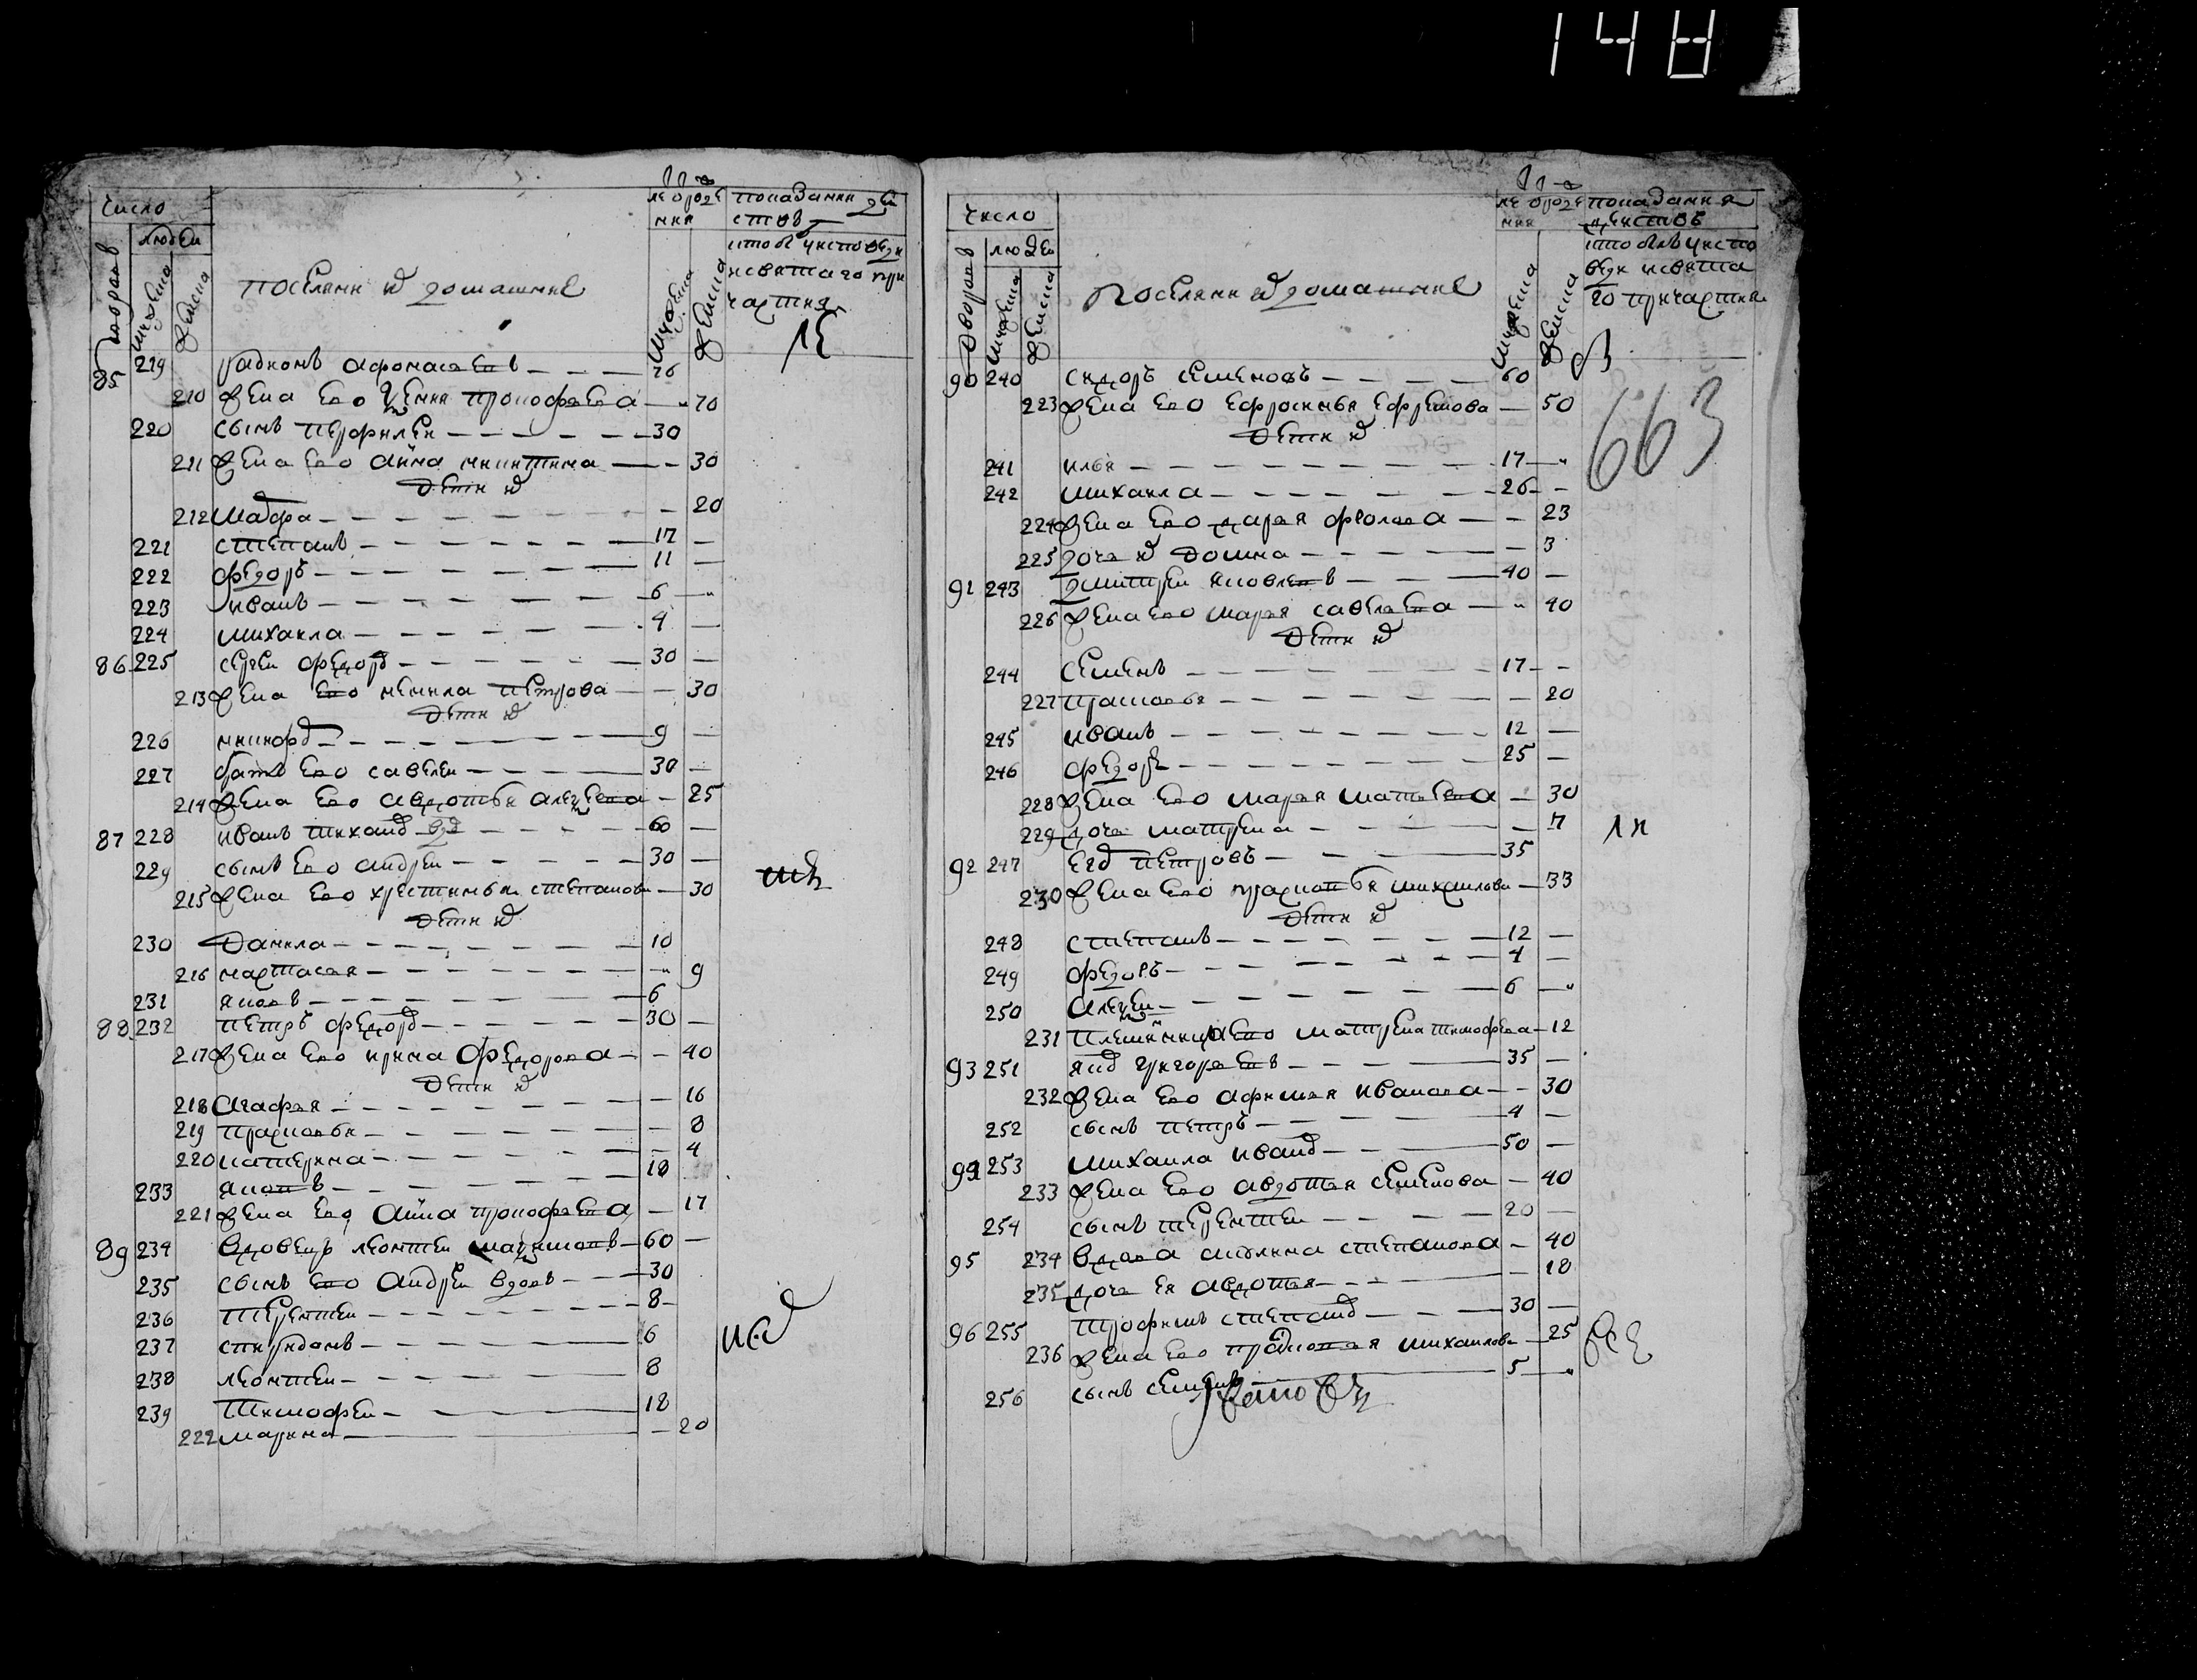 148
число
людеи
дворовъ
мужеска
женска
поселяня и домашние
мужеска
женска
показании деи
ствъ
кто былъ у исповеди
и святаго при
частия
85 219 радионъ афонасьевъ 76
210 жена ево прокофьева 70
220 сынъ перфилеи 30
211 жена ево анна никитина 30
дети их
212 марфа 20
221 степанъ 17
222 федоръ 11
223 иванъ 6
224 михаила 4
86 225 сергеи федоров 30
213 жена ево ненила петрова 30
дети их
226 никифор 9
227 братъ ево савелеи 30
214 жена ево авдотья алексеева 25
87 228 иванъ тиханов вдов 60
229 сынъ ево андреи 30
215 жена ево хрестинья степанова 30
дети их
230 данила 10
216 настасья 9
231 яковъ 6
88 232 петръ федоров 30
217 жена ево ирина федорова 40
дети их
218 агафья 16
219 прасковья 8
220 катерина 4
233 яковъ 18
221 жена ево анна прокофьева 17
89 234 вдовецъ леонтеи максимовъ 60
235 сынъ ево андреи вдовъ 30
236 терентеи 8
237 спиридонъ 6
238 леонтеи 8
239 тимофеи 18
222 марина 20
число
людеи
дворовъ
мужеска
женска
поселяня и домашние
мужеска
женска
показания
деиствъ
кто былъ у испо
веди и свята
го причастия
663
90 240 сидоръ семеновъ 60
223 жена ево ефросинья ефремова 50
дети их
241 илья 17
242 михаила 26
224 жена ево дарья фролова 23
225 дочь их домна 3
91 243 дмитреи яковлевъ 40
226 жена ево марья савельева 40
дети их
244 семенъ 17
227 прасковья 20
245 иванъ 12
246 федоръ 25
228 жена ево марья матвеева 30
229 дочь матрена 7
92 247 егор петровъ 35
230 жена ево прасковья михаилова 33
дети их
248 степанъ 12
249 федоръ 4
250 алексеи 6
231 племянница ево матрена тимофеева 12
93 251 яков григорьевъ 35
232 жена ево афимья иванова 30
252 сынъ петръ 4
94 253 михаила иванов 50
233 жена ево авдотья семенова 40
254 сынъ терентеи 20
95 234 вдова акулина степанова 40
235 дочь ея авдотья 18
96 255 трофимъ степанов 30
236 жена ево прасковья михаилова 25
256 сынъ семенъ 5